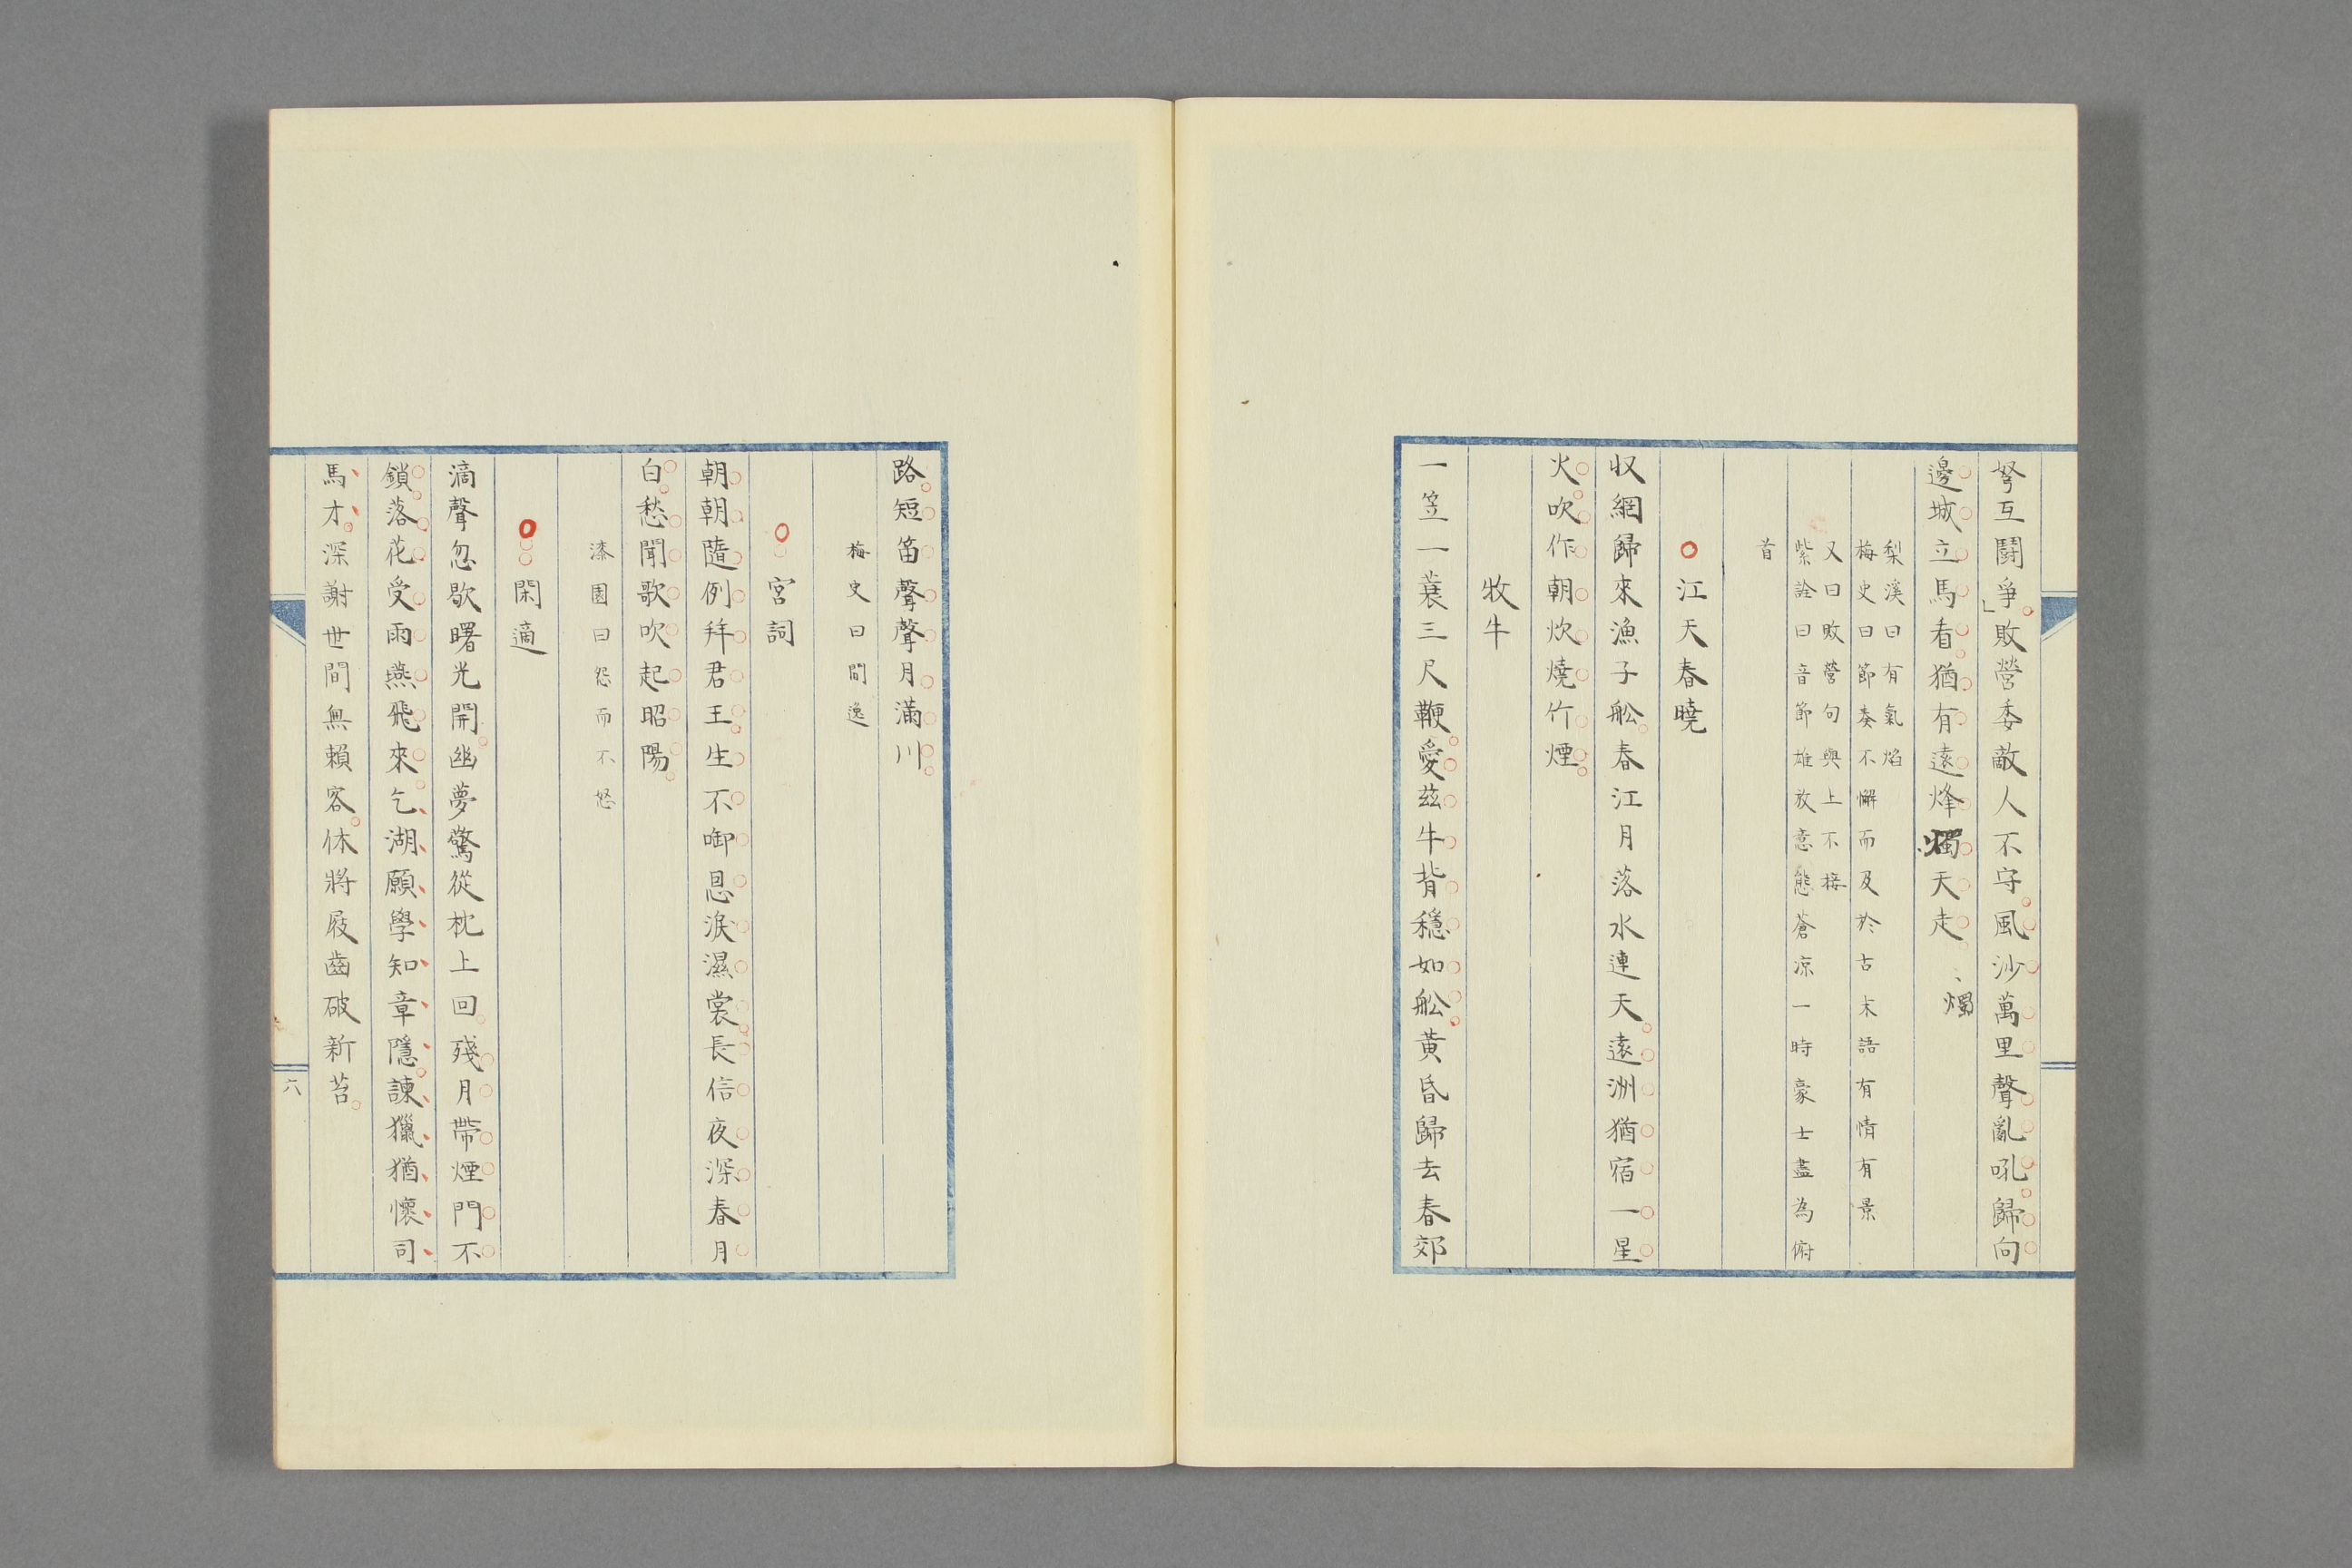 弩互鬪爭敗營委敵人不守風沙萬里聲亂吼歸向
邊城立馬看猶有遠烽燭天走
燭
梨溪曰有氣焰
梅史曰節奏不懈而及於古末語有情有景
又曰敗營句與上不接
紫詮曰音節雄放意態蒼涼一時豪士盡為俯
首
江天春曉
収網歸來漁子舩春江月落水連天遠洲猶宿一星
火吹作朝炊燒竹煙
牧牛
一笠一蓑三尺鞭愛茲牛背穩如舩黃昏歸去春郊
路短笛聲聲月滿川
梅史曰閒逸
宮詞
朝朝隨例拜君王生不啣恩淚濕裳長信夜深春月
白愁聞歌吹起昭陽
漆園曰怨而不怒
閑適
滴聲忽歇曙光開幽夢驚從枕上回殘月帶煙門不
鎖落花受雨燕飛來乞湖願學知章隱諫獵猶懷司
馬才深謝世間無賴客休將屐齒破新苔
六